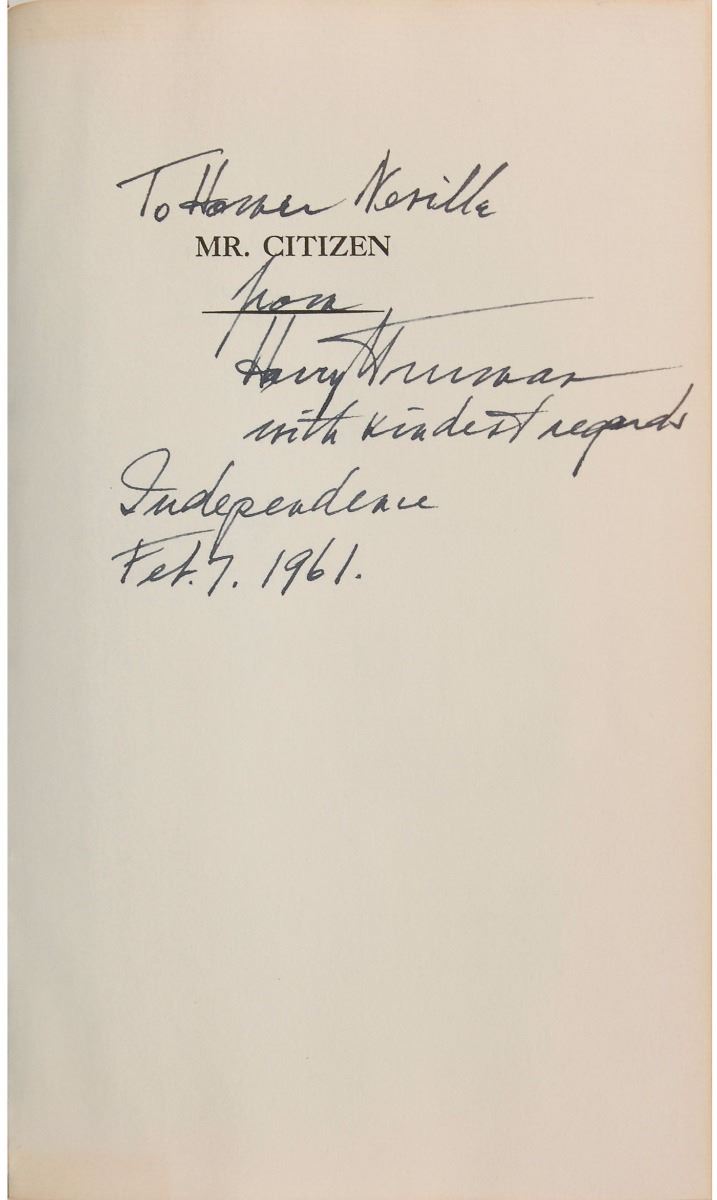 To Homer Neville
MR. CITIZEN
from
Harry Truman
with kindest regards
Independence
Feb. 7. 1961.